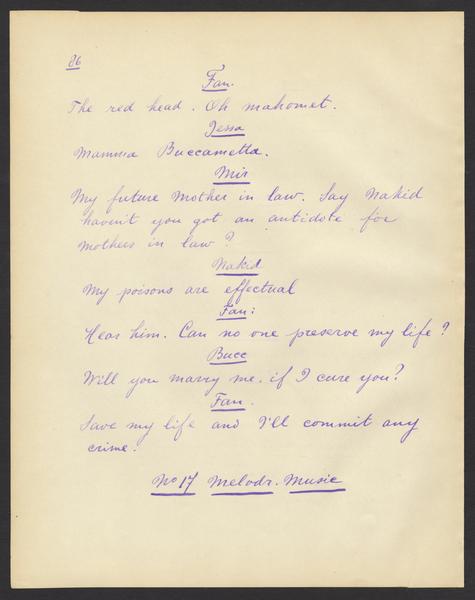 86
Fan.
The red head. Oh mahomet.
Tessa
Mamma Buccametta.
Mir
My future Mother in law. Say Nakid
haven't you got an antidote for
Mothers in law?
Nakid
My poisons are effectual
Fan:
Hear him. Can no one preserve my life?
Bucc
Will you marry me. if I cure you?
Fan.
Save my life and I'll commit any
crime.
No 17 Melodr. Music